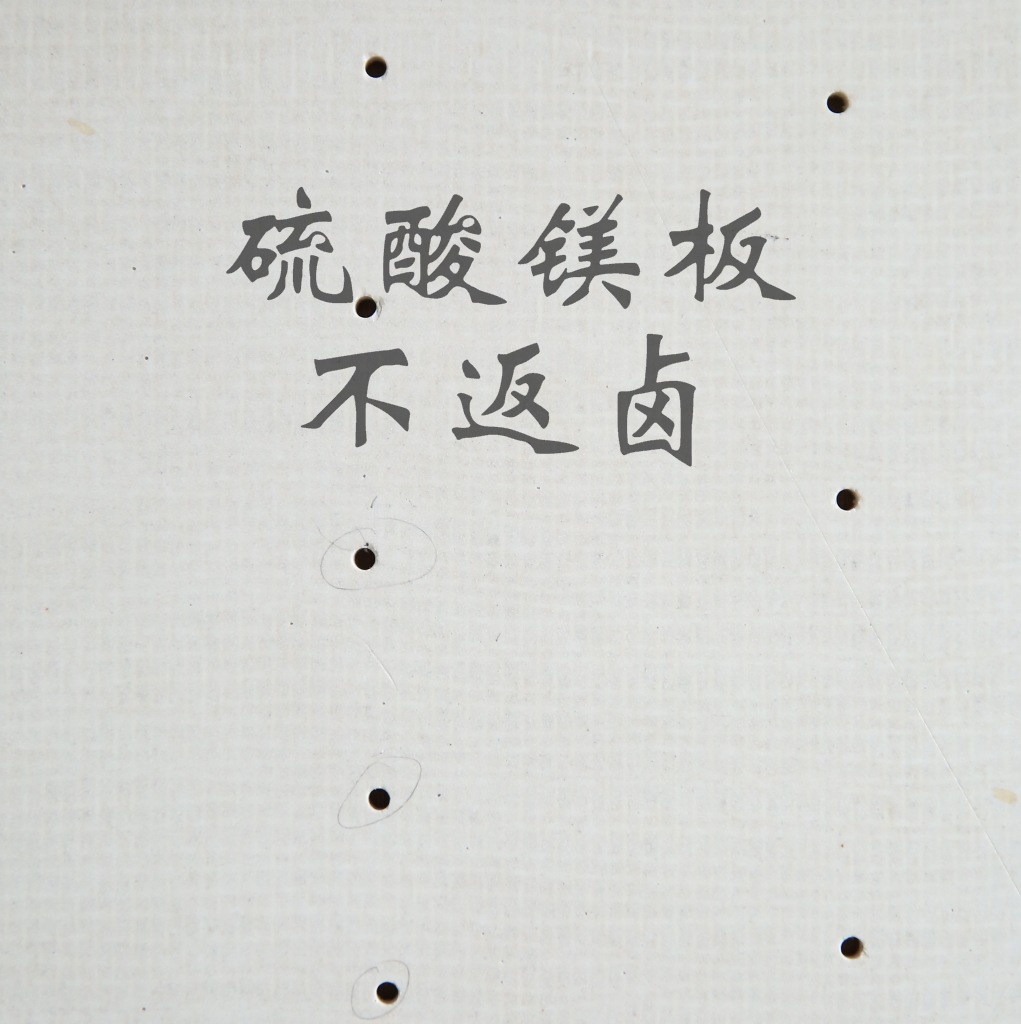 硫酸镁板
不返卤